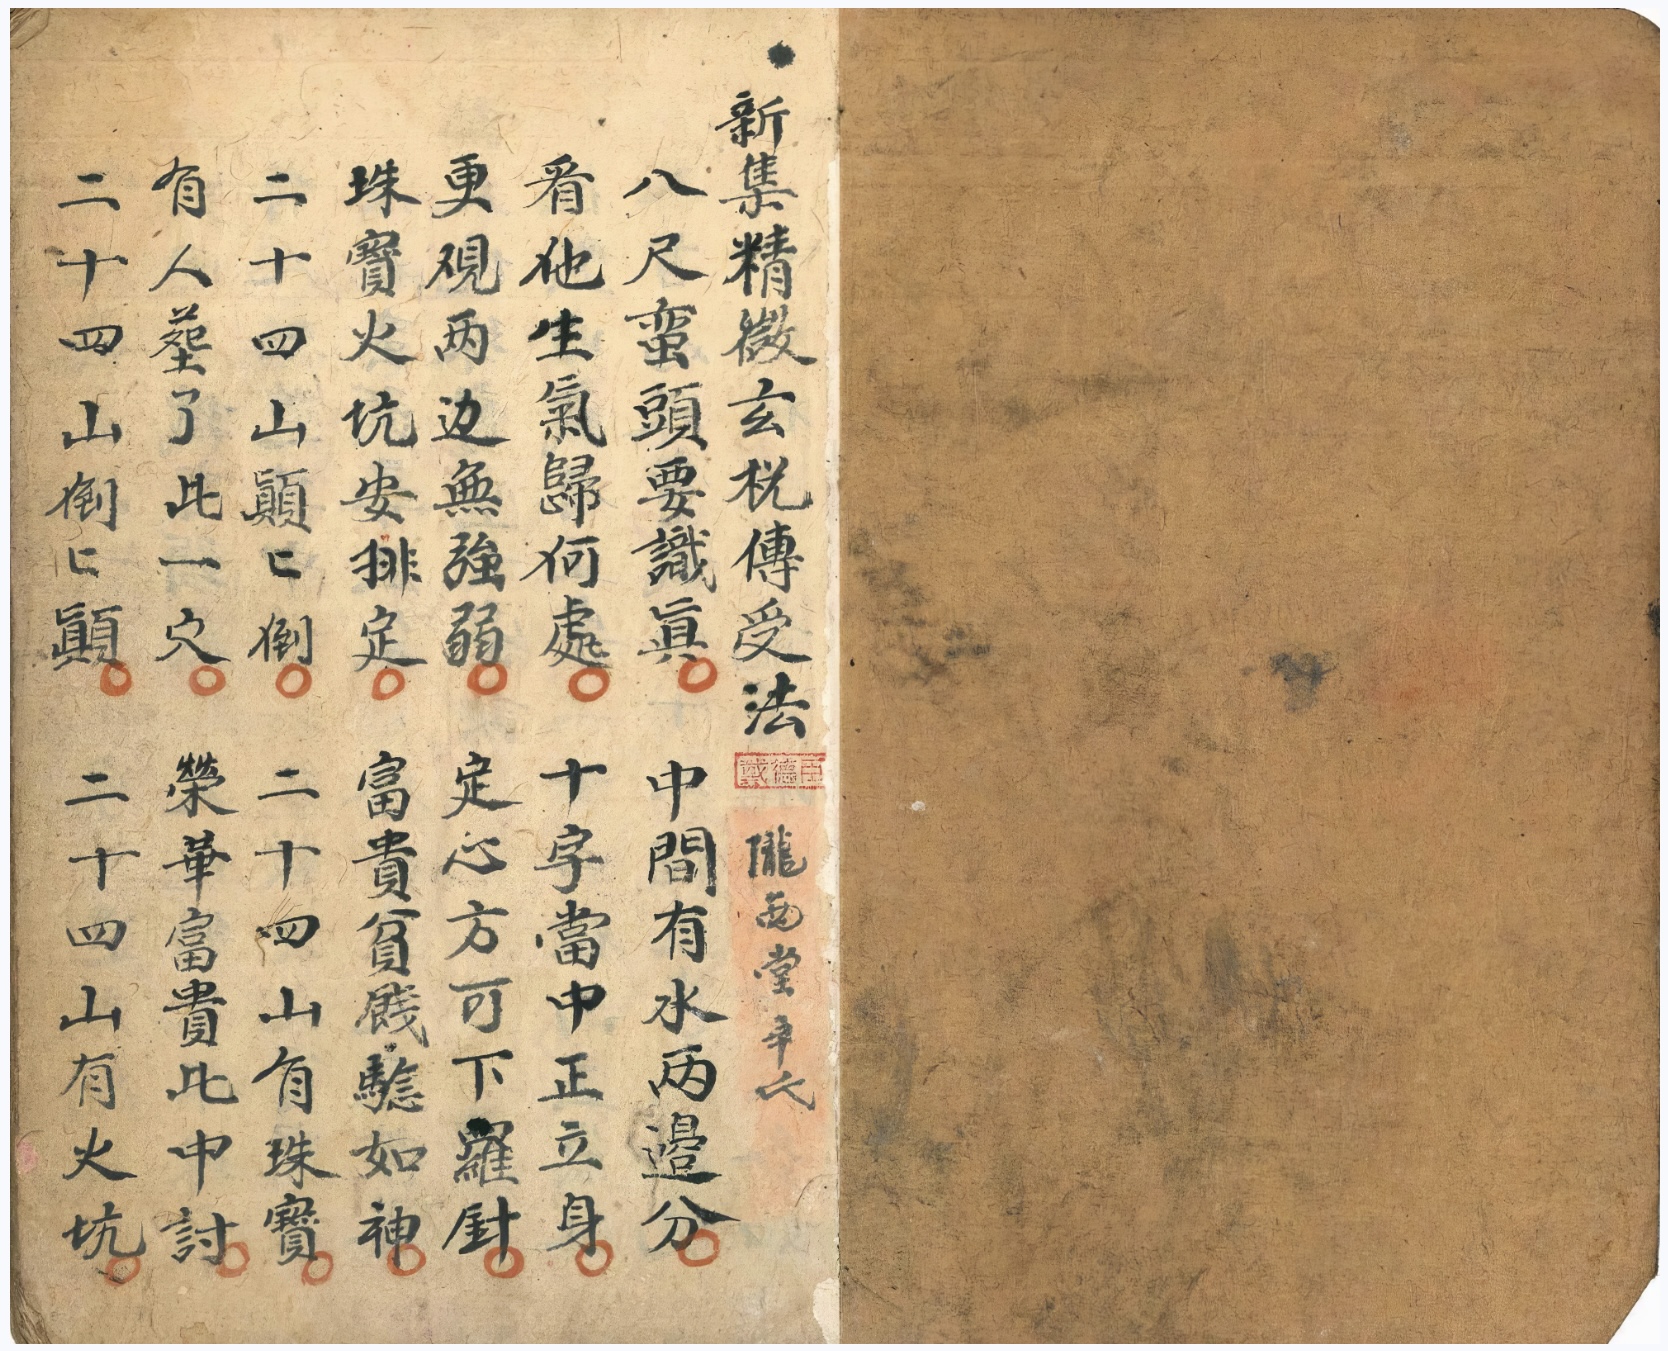 新集精微玄桄傳受法
戴德臣
隴西堂辛氏
八尺蛮頭要識眞 中間有水两邉分
看他生氣歸何處 十字當中正立身
更观两边無強弱 定心方可下羅針
珠寶火坑安排定 富貴貧賤驗如神
二十四山顚匕倒 二十四山有珠寶
有人塟了此一穴 榮華富貴此中討
二十四山倒匕顚 二十四山有火坑